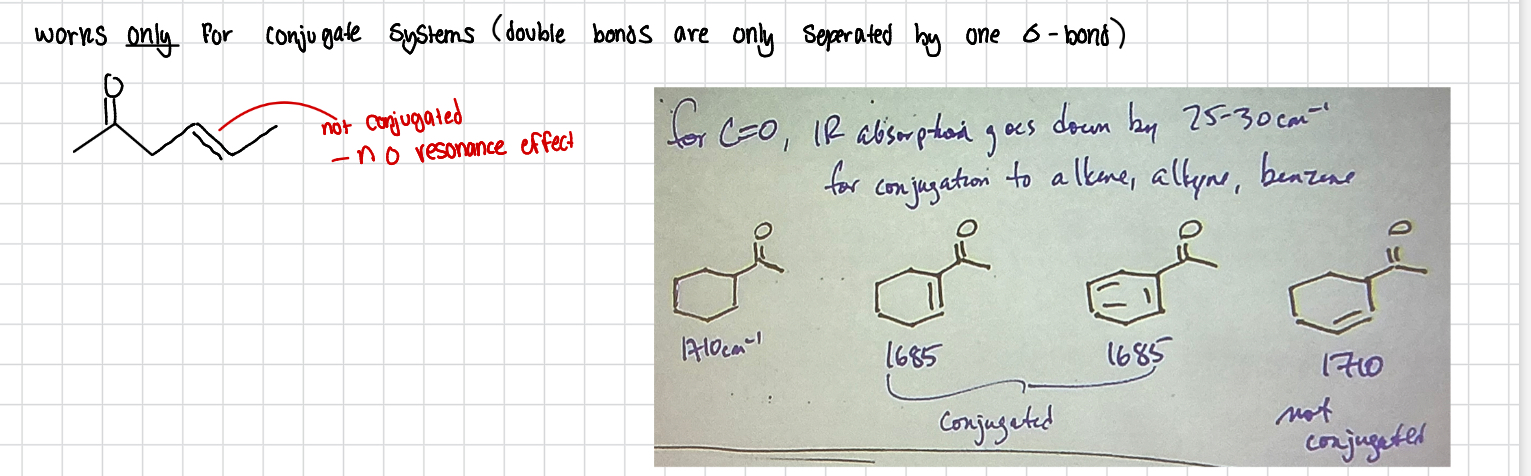 works only for conjugate systems (double bonds are only seperated by one σ-bond)
O
not conjugated
- no resonance effect
for C=O, IR absorption goes down by 25-30 cm⁻¹
for conjugation to alkene, alkyne, benzene
O O O O
1710cm⁻¹ 1685 1685 1710
conjugated
not
conjugated